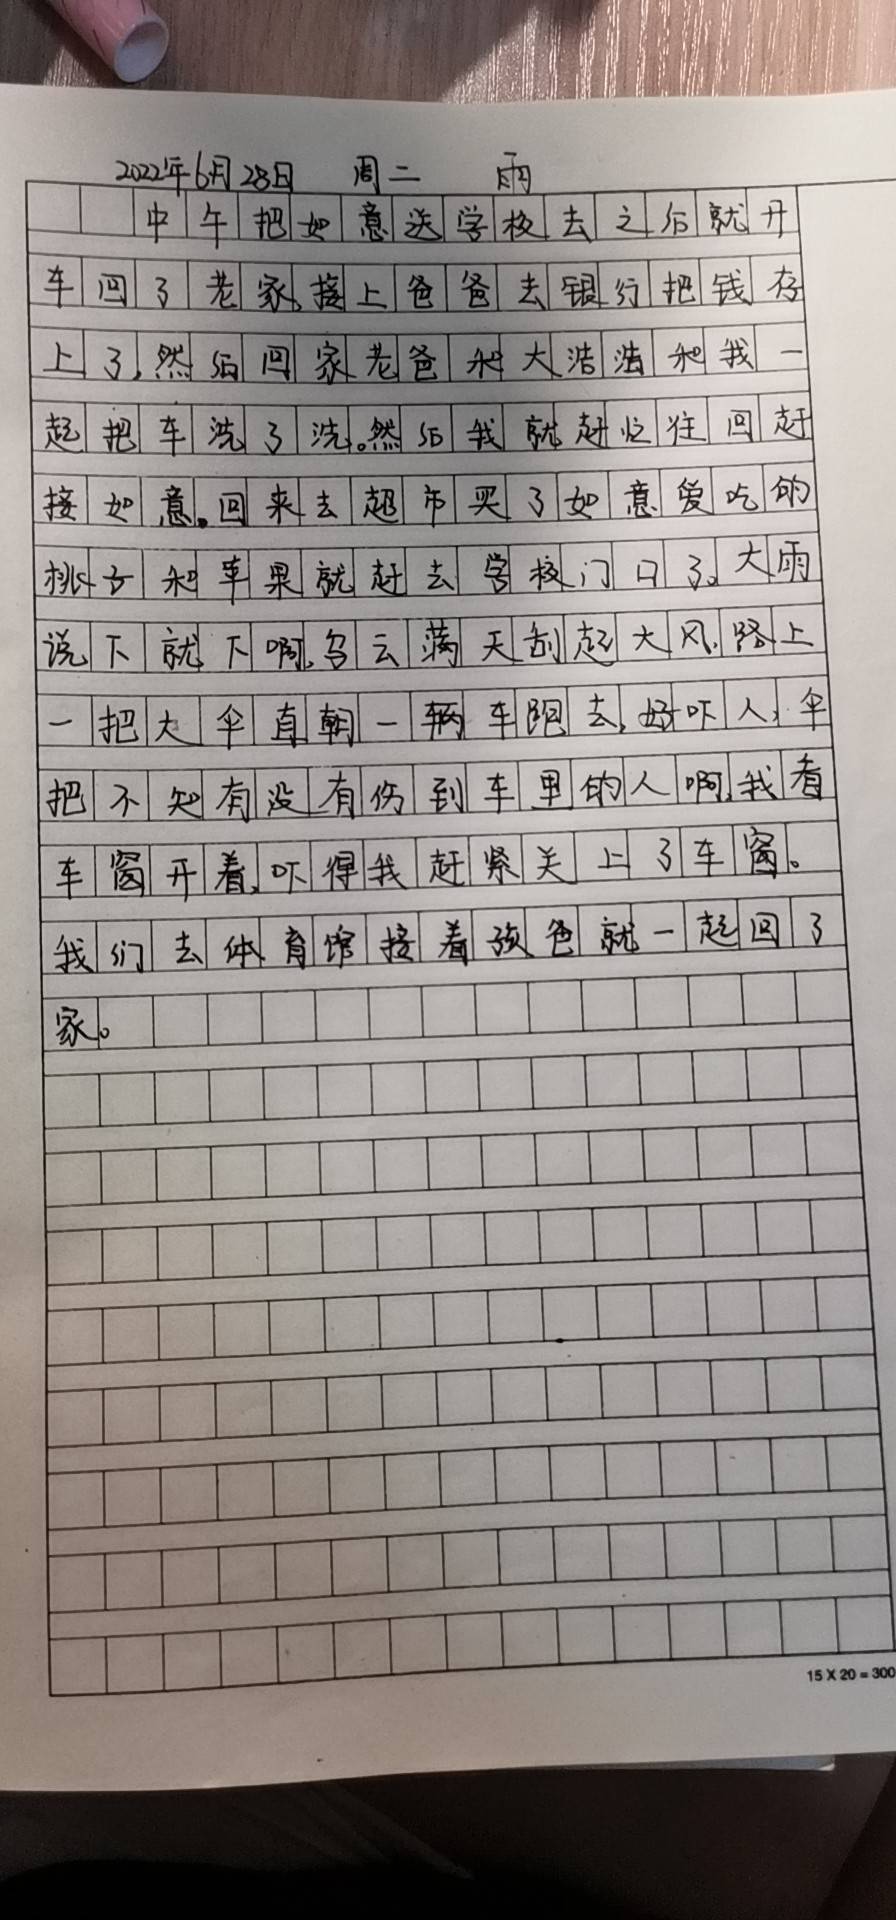 2022年6月28日 周二 雨
中午把如意送学校去之后就开
车回了老家,接上爸爸去银行把钱存
上了,然后回家老爸和大浩浩和我一
起把车洗了洗。然后我就赶忙往回赶
接如意。回来去超市买了如意爱吃的
桃子和苹果就赶去学校门口了。大雨
说下就下啊,乌云满天刮起大风,路上
一把大伞直朝一辆车跑去,好吓人,伞
把不知有没有伤到车里的人啊,我看
车窗开着,吓得我赶紧关上了车窗。
我们去体育馆接着孩爸就一起回了
家。
15 X 20 = 300